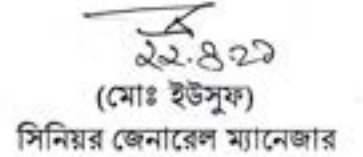 ২২.৪.২১
(মোঃ ইউসুফ)
সিনিয়র জেনারেল ম্যানেজার